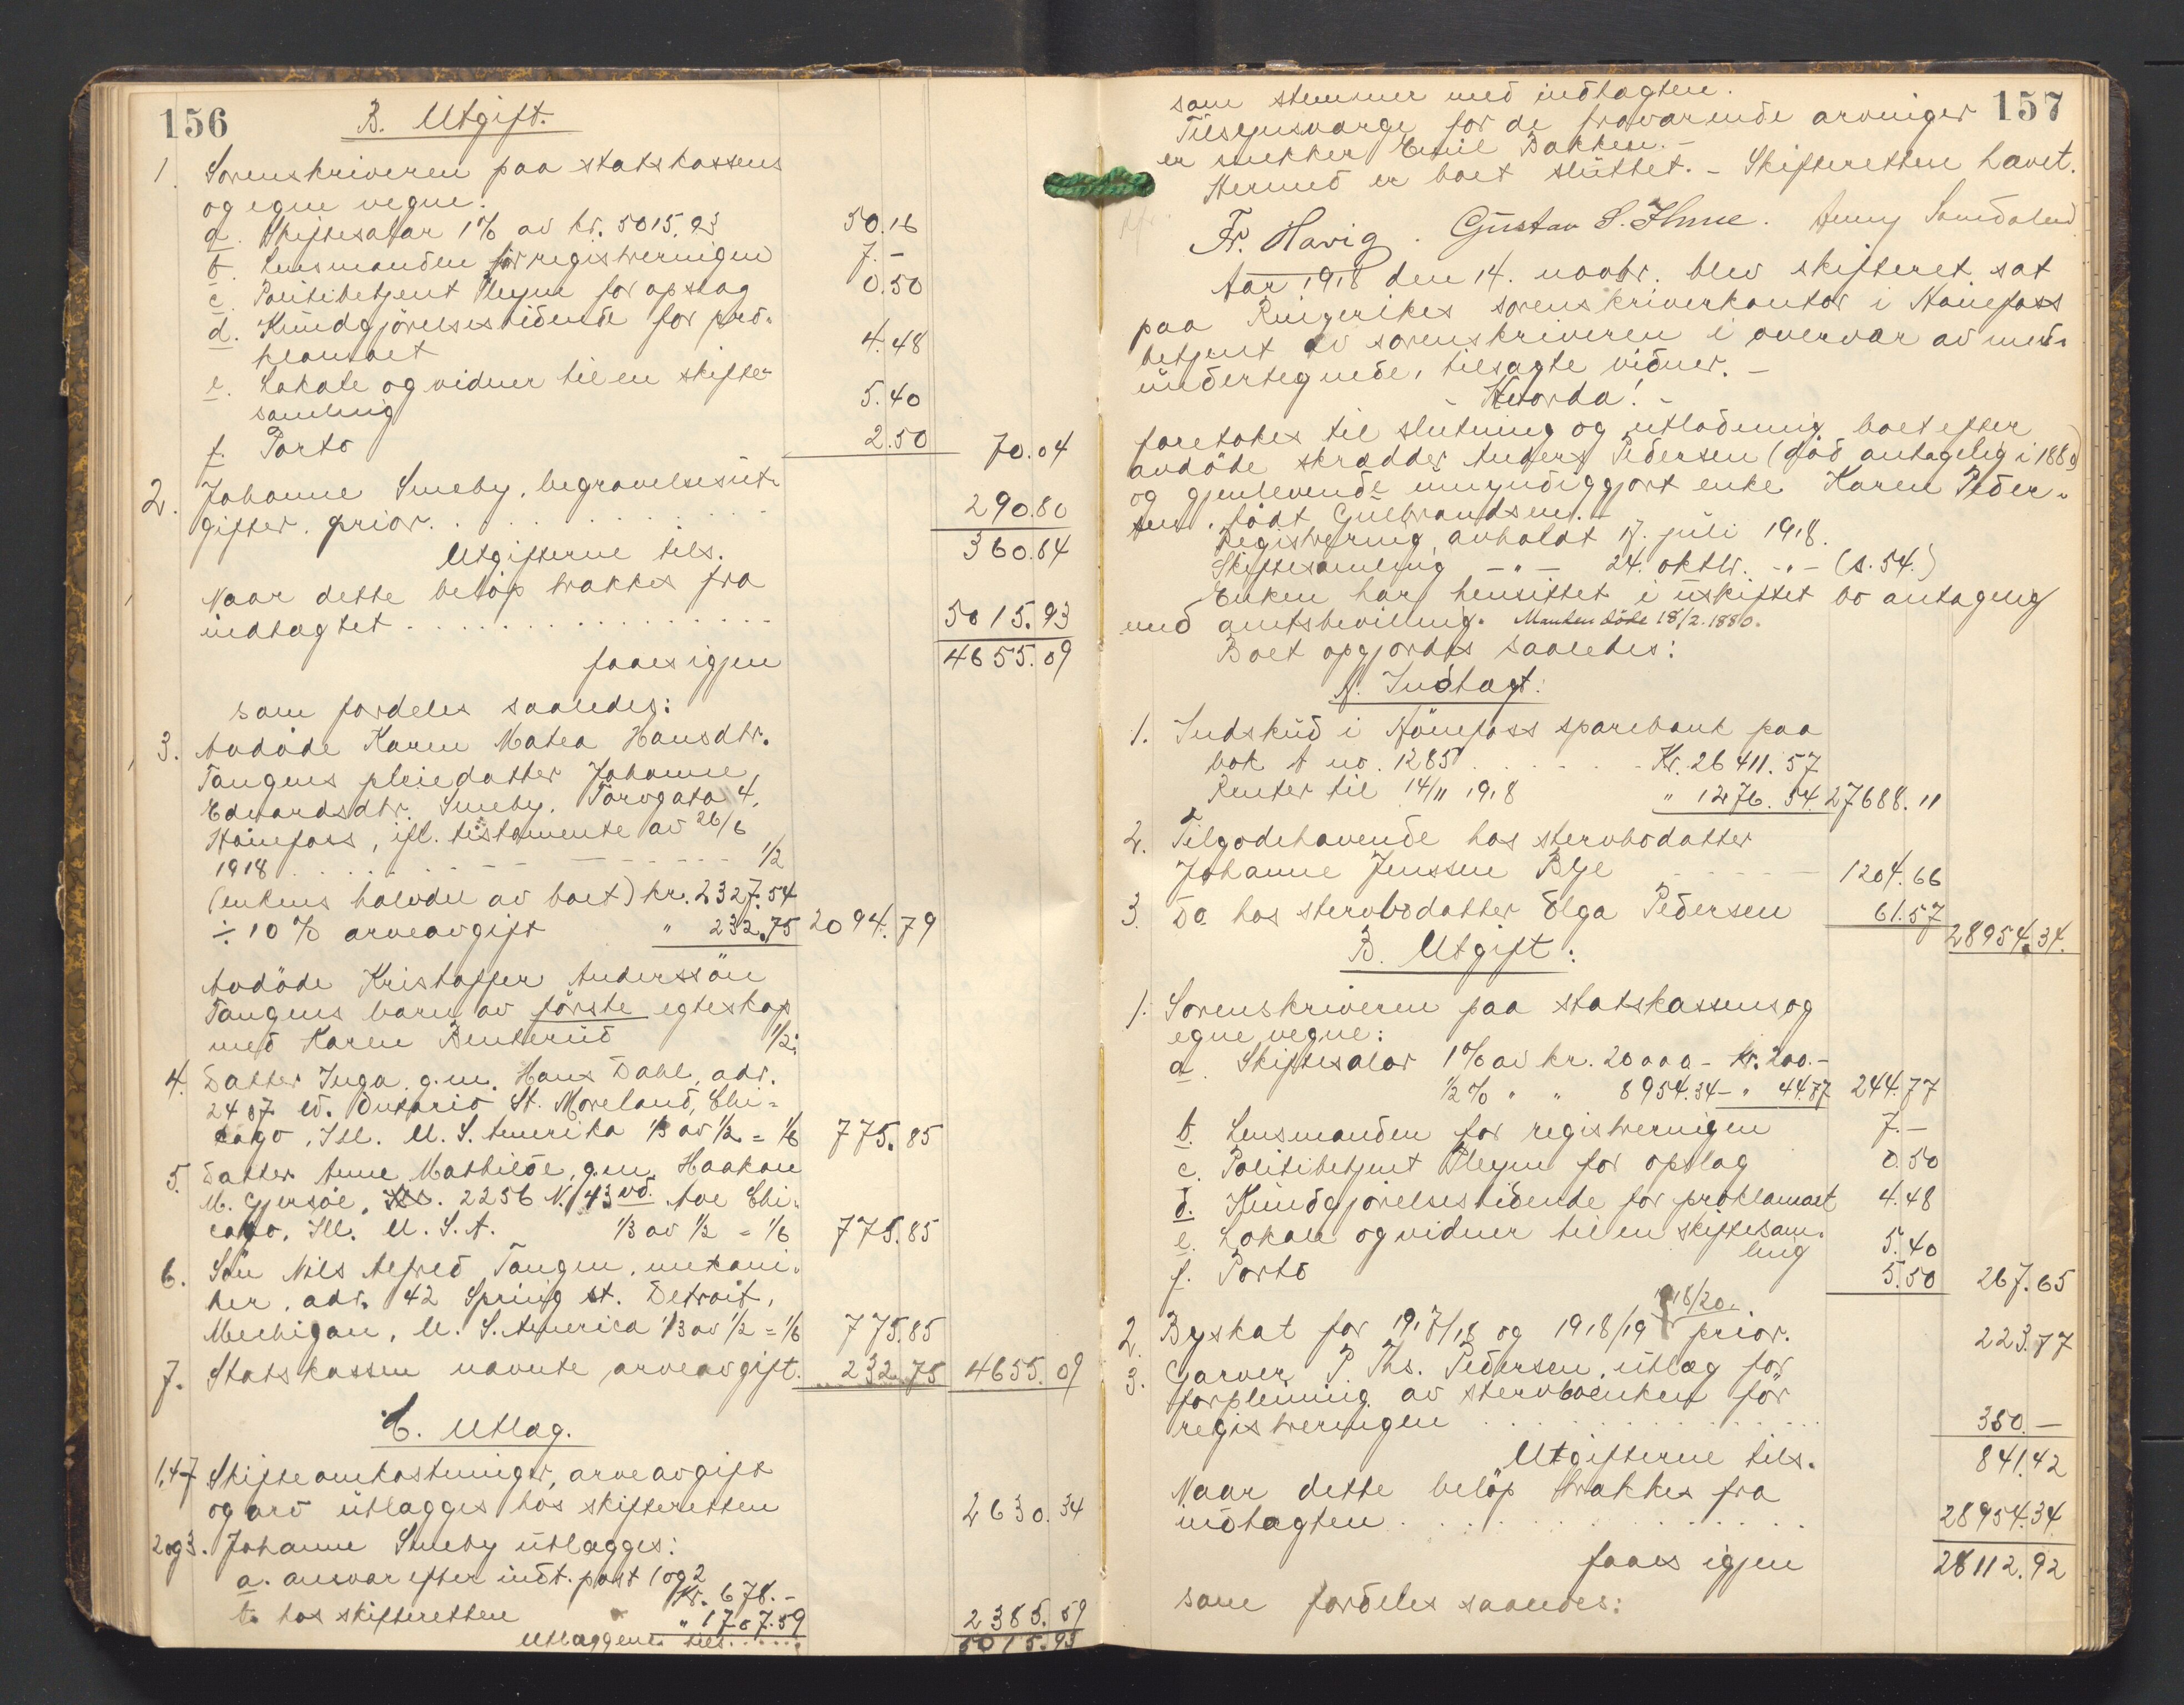 156
B. Utgift.
1. Sorenskriveren paa statskassens
og egne vegne:
a. Skiftesalær 1% av kr. 5015.93 50.16
b. Lensmanden for registreringen 7.-
c. Politibetjent Pleym for opslag 0.50
d. Kundgjörelsestidende for pro-
klamaet 4.48
e. Lokale og vidner til en skifte-
samling 5.40
f. Porto 2.50 70.04
2. Johanne Smeby, begravelsesut-
gifter. prior. 290.80
Utgifterne tils. 360.84
Naar dette belöp trækkes fra
indtægtet 5015.93
faaes igjen 4655.09
som fordeles saaledes:
3. Avdöde Karen Matea Hansdtr.
Tangens pleiedatter Johanne
Edvardsdtr. Smeby. Torvgata 4,
Hönefoss, ifl. testamente av 26/6
1918 1/2
(enkens halvdel av boet) kr. 2327.54
÷ 10% arveavgift " 232.75 2094.79
Avdöde Kristoffer Anderssön
Tangens barn av förste egteskap
med Karen Benterud 1/2:
4. Datter Inga, g.m. Hans Dahl, adr.
2407 W. Ontario St. Moreland, Chi-
cago, Ill. U. S. Amerika 1/3 av 1/2 = 1/6 775.85
5. Datter Anne Mathilde, g.m. Haakon
M. Gjersöe, 2256 N. 43rd. Ave Chi-
cago, Ill. U. S. A. 1/3 av 1/2 = 1/6 775.85
6. Sön Nils Alfred Tangen, mekani-
ker, adr. 42 Spring st. Detroit,
Mechigan, U. S. America 1/3 av 1/2 = 1/6 775.85
7. Statskassen nævnte arveavgift. 232.75 4655.09
C. Utlæg.
1.4-7 Skifteomkostninger, arveavgift
og arv utlægges hos skifteretten 2630.34
2og3. Johanne Smeby utlægges:
a. ansvar efter indt. post 1 og 2
Kr. 678.-
b. hos skifteretten " 1707.59 2385.59
Utlæggene tils. 5015.93
157
som stemmer med indtægten.
Tilsynsværge for de fraværende arvinger
er snekker Emil Bakken. -
Hermed er boet sluttet. - Skifteretten hævet.
Fr. Havig. Gustav S. Ihme. Anny Somdalen
Aar 1918 den 14. novbr. blev skifteret sat
paa Ringerikes sorenskriverkontor i Hönefoss
betjent av sorenskriveren i overvær av med-
undertegnede, tilsagte vidner. -
- Hvorda! -
foretokes til slutning og utlodning boet efter
avdöde skrædder Anders Pedersen (död antagelig i 1880)
og gjenlevende umyndiggjort enke Karen Peder-
sen, födt Gulbrandsen. -
Registrering avholdt 17. juli 1918.
Skiftesamling -"- 24. oktbr. -"- (s. 54.)
Enken har hensittet i uskiftet bo antagelig
med amtsbevilling. Manden döde 18/2. 1880.
Boet opgjordes saaledes:
A. Indtægt:
1. Indskud i Hönefoss sparebank paa
bok A no. 1285 Kr. 26411.57
Renter til 14/11 1918 " 1276.54 27688.11
2. Tilgodehavende hos stervbodatter
Johanne Jenssen Bye 1204.66
3. Do. hos stervbodatter Olga Pedersen 61.57 28954.34.
B. Utgift:
1. Sorenskriveren paa statskassens og
egne vegne:
a. Skiftesalær 1% av kr. 20000 - kr. 200.-
1/2% " " 8954.34 - " 44.77 244.77
b. Lensmanden for registreringen 7.-
c. Politibetjent Pleym for opslag 0.50
d. Kundgjörelsestidende for proklamaet 4.48
e. Lokale og vidner til en skiftesam-
ling 5.40
f. Porto 5.50 267.65
1918/20.
2. Byskat for 1917/18 og 1918/19 prior. 223.77
3. Garver P. Ths. Pedersen, utlæg for
forpleining av stervboenken för
registreringen 350.-
Utgifterne tils. 841.42
Naar dette belöp trækkes fra
indtægten 28954.34
faaes igjen 28112.92
som fordeles saaledes: